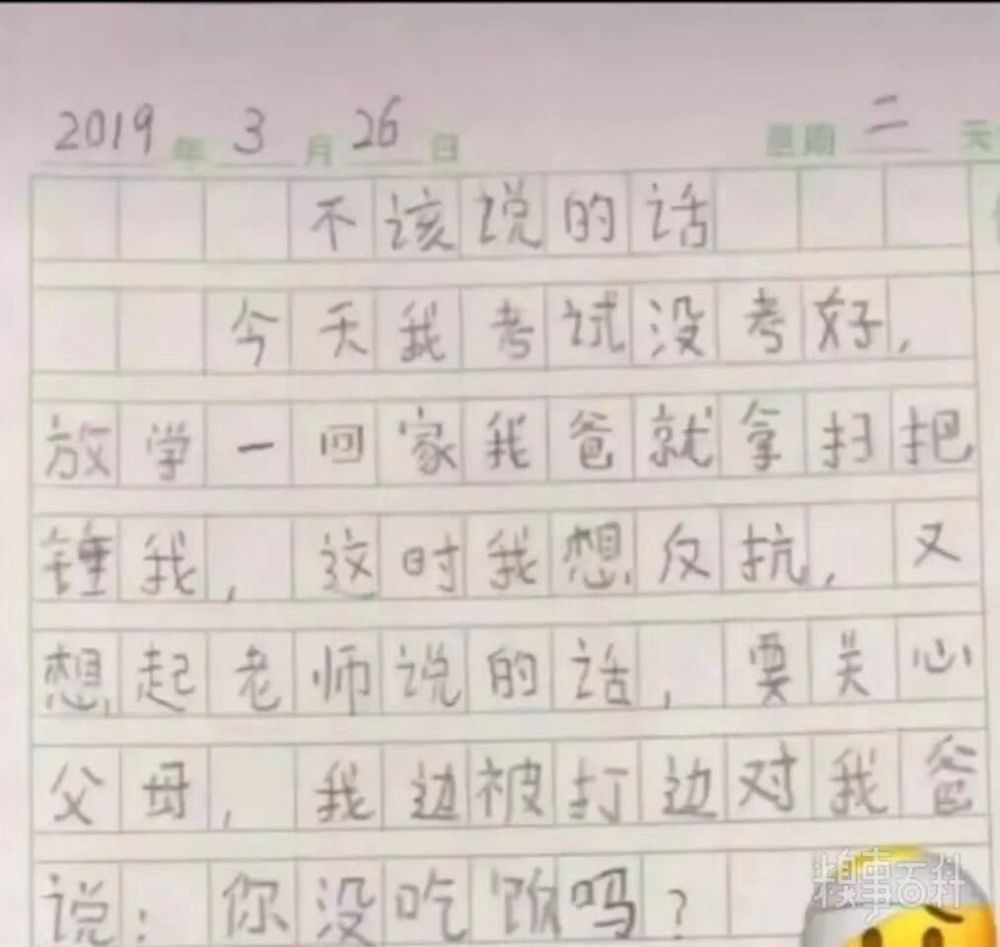 2019年3月26日 星期二 天
不该说的话
今天我考试没考好,
放学一回家我爸就拿扫把
锤我,这时我想反抗,又
想起老师说的话,要关心
父母,我边被打边对我爸
说:你没吃饭吗?
糗事百科